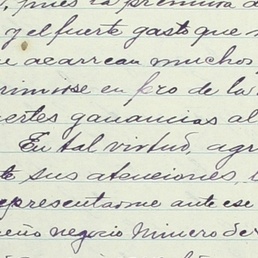 , pues la premura d
y el fuerte gasto que
acarrean muchos
rimirse en pro de la
uertes ganancias al
En tal virtud, agr
te sus atenciones,
epresentarme ante ese
ueño negocio Minero de